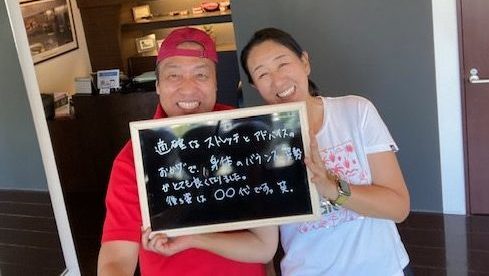 適確なストレッチとアドバイスの
おかげで、身体のバランス、姿勢
がとても良くなりました。
後ろ姿は〇〇代です。笑